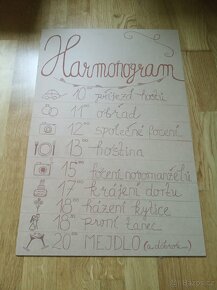 Harmonogram
10⁰⁰ příjezd hostů
11⁰⁰ obřad
12⁰⁰ společné focení
13⁰⁰ hostina
15⁰⁰ focení novomanželů
17⁰⁰ krájení dortu
18⁰⁰ házení kytice
18³⁰ první tanec
20⁰⁰ MEJDLO